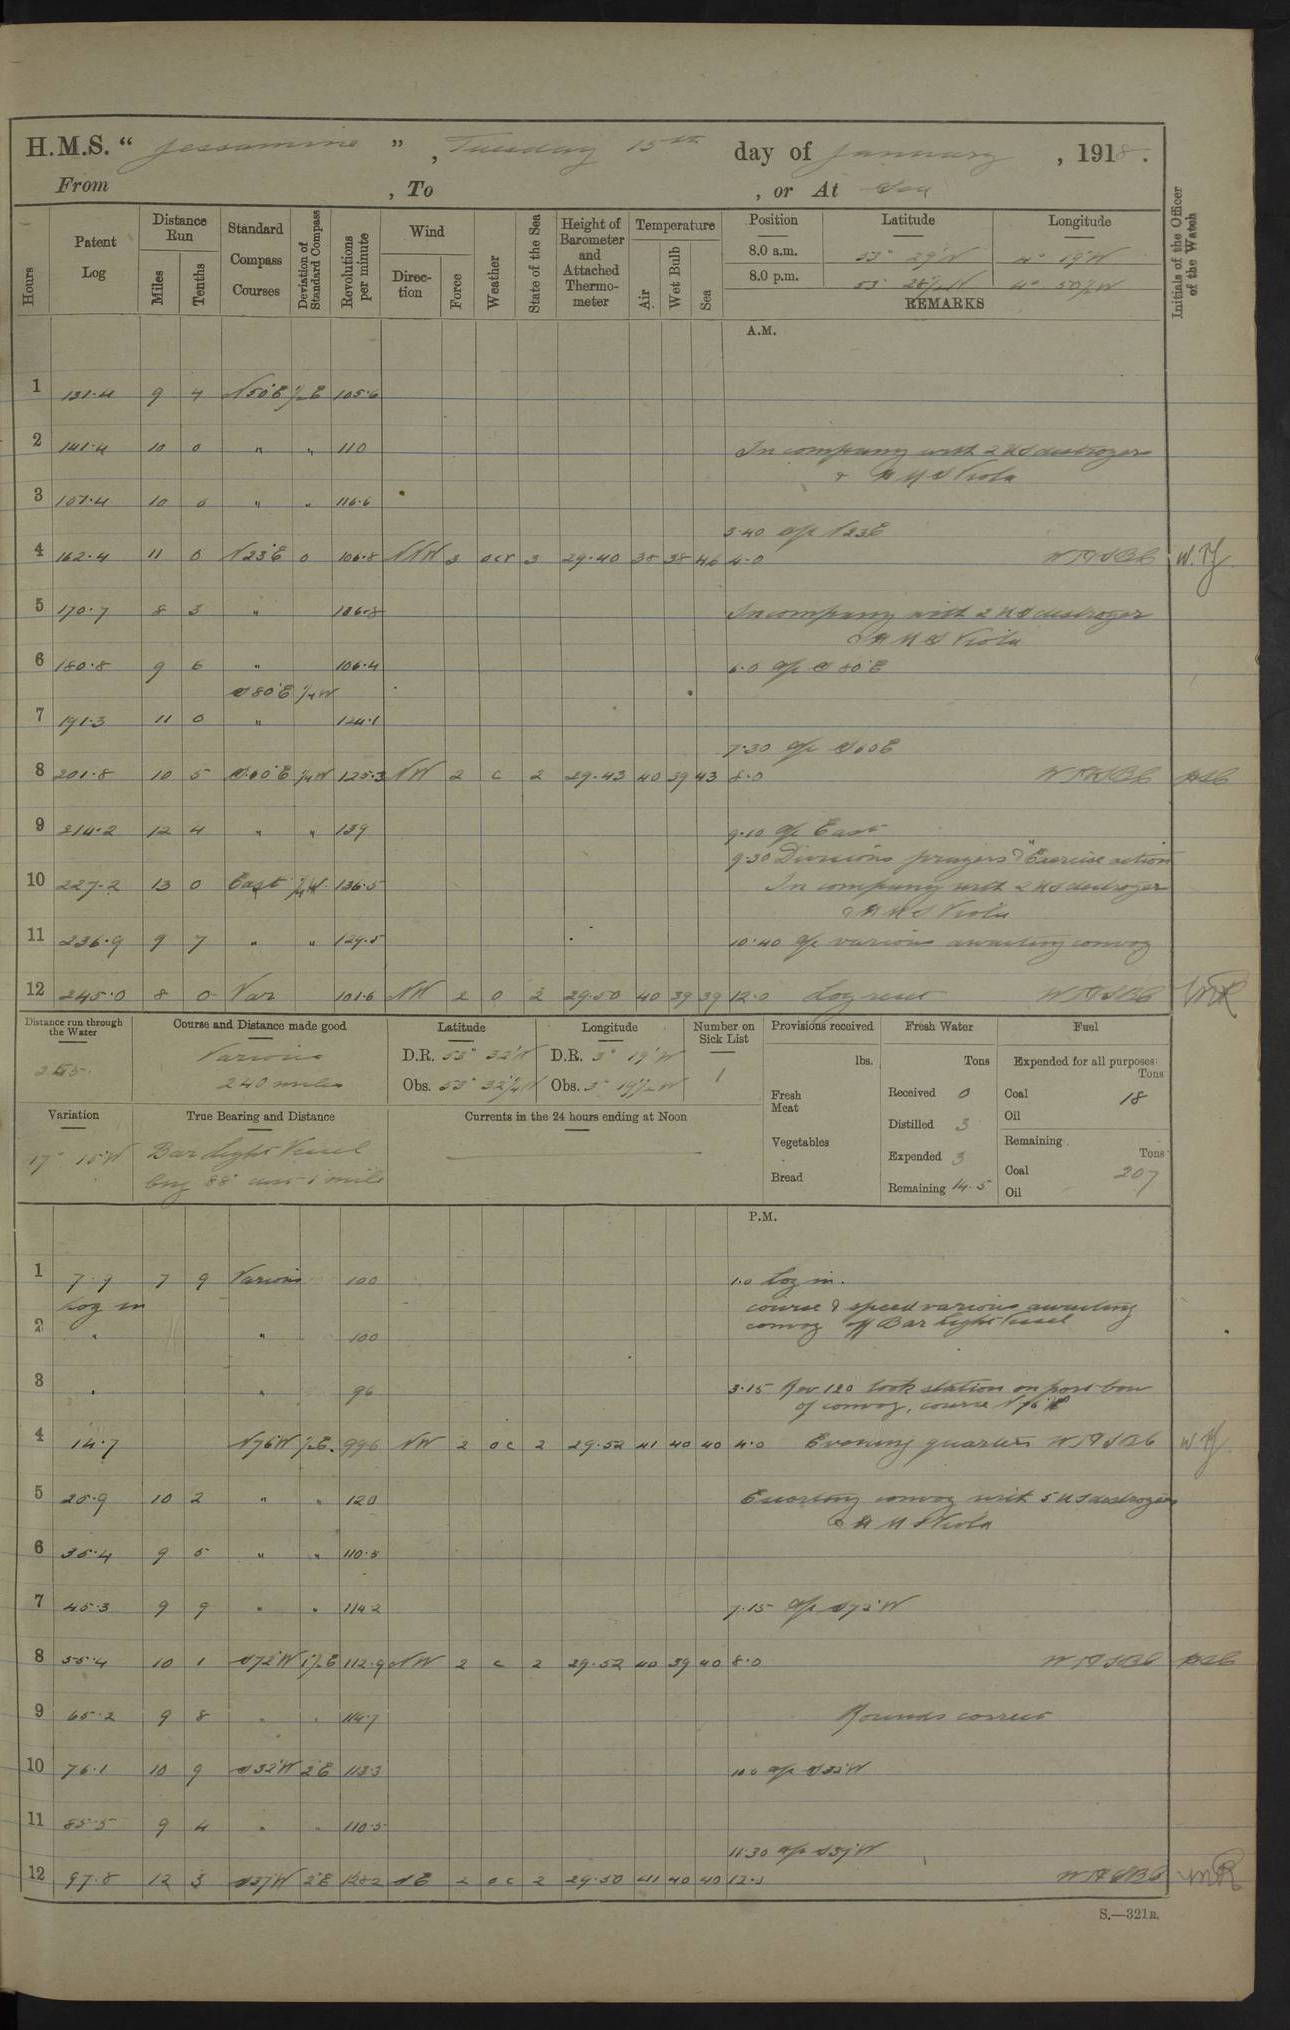 H.M.S. " Jessamine ", Tuesday 15th day of January, 1918.
From , To , or At Sea
Hours
Patent Log
Distance Run
Miles
Tenths
Standard Compass Courses
Deviation of Standard Compass
Revolutions per minute
Wind
Direction
Force
Weather
State of the Sea
Height of Barometer and Attached Thermometer
Temperature
Air
Wet Bulb
Sea
Position Latitude Longitude
8.0 a.m. 53° 29'N 4° 19'W
8.0 p.m. 53° 28½N 4° 50½W
REMARKS
Initials of the Officer of the Watch
A.M.
1 131.4 9 4 N50°E ½E 105.6
2 141.4 10 0 " " 110 In company with 2 US destroyer
& HMS Viola
3 10 0 " " 116.6
3.40 a/c N23E
4 162.4 11 0 N23°E 0 106.8 NNW 3 ocr 3 29.40 38 38 46 4.0
5 170.7 8 3 " 106.8 In company with 2 US destroyer
& HMS Viola
6 180.8 9 6 " 106.4 6.0 a/c S 80°E
S80°E ¼W
7 191.3 11 0 " 124.1
7.30 a/c S60E
8 201.8 10 5 S.60°E ¼W 125.3 NW 2 c 2 29.43 40 39 43 8.0
9 214.2 12 4 " " 139 9.10 a/c East
9.30 Divisions prayers & "Exercise action
10 227.2 13 0 East ¼W. 136.5 In company with 2 US destroyer
& HMS Viola
11 236.9 9 7 " " 129.5 10.40 a/c various awaiting convoy
12 245.0 8 0 Var 101.6 NW 2 0 2 29.50 40 39 39 12.0 Log reset
Distance run through the Water
Course and Distance made good
Various
240 miles
Latitude
D.R. 53° 32'N
Obs. 53° 32¼N
Longitude
D.R. 3° 19'W
Obs. 3° 19½W
Number on Sick List
1
Provisions received
lbs.
Fresh Meat
Vegetables
Bread
Fresh Water
Tons
Received 0
Distilled 3
Expended 3
Remaining 14.5
Fuel
Expended for all purposes:
Tons
Coal 18
Oil
Remaining
Tons
Coal 207
Oil
Variation
17° 15'W
True Bearing and Distance
Bar Light Vessel
brg 88° dist 1 mile
Currents in the 24 hours ending at Noon
P.M.
1 7.9 7 9 Various 100 1.0 Log in.
Log in course & speed various awaiting
2 " " 100 convoy off Bar Light Vessel
3 " " 96 3.15 Rev 120 took station on port bow
of convoy, course N76W
4 14.7 N76°W ½E. 99.6 NW 2 oc 2 29.52 41 40 40 4.0 Evening quarters
5 10 2 " " 120 Escorting convoy with 5 US destroyers
& HMS Viola
6 35.4 9 5 " " 110.5
7 45.3 9 9 " " 114.2 7.15 a/c S72°W
8 55.4 10 1 S72°W 1½E 112.9 NW 2 c 2 29.52 40 39 40 8.0
9 65.2 9 8 " " 114.7 Rounds correct
10 76.1 10 9 S32°W 2°E 113.3 10.0 a/c S32°W
11 85.5 9 4 " " 110.5
11.30 a/c S37°W
12 97.8 12 3 S37°W 2°E 2 oc 2 29.50 41 40 40 12.0
S.—321B.